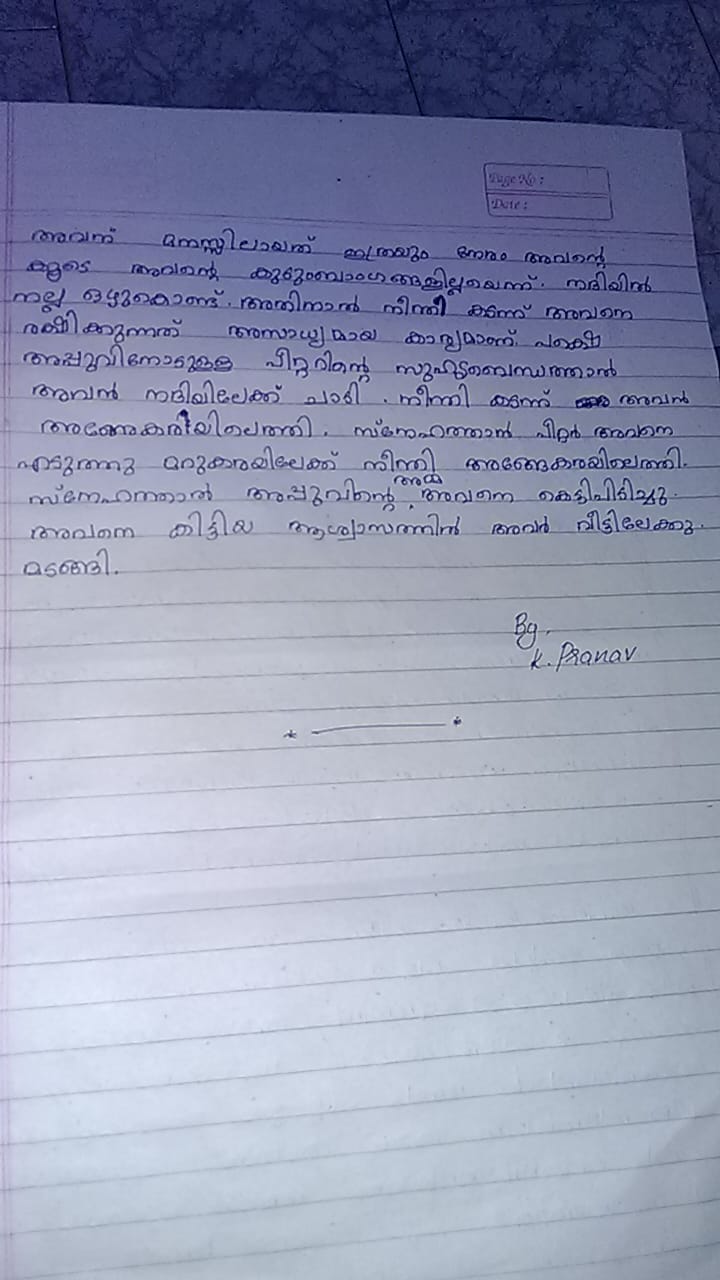 Page No :
Date :
അവന് മനസ്സിലായത് ഇത്രയും നേരം അവന്റെ
കൂടെ അവന്റെ കുടുംബാംഗങ്ങളില്ലയെന്ന്. നദിയിൽ
നല്ല ഒഴുകൊണ്ട്. അതിനാൽ നീന്തി കടന്ന് അവനെ
രക്ഷിക്കുന്നത് അസാധ്യമായ കാര്യമാണ്. പക്ഷെ
അപ്പുവിനോടുള്ള പീറ്ററിന്റെ സുഹൃദബന്ധത്താൽ
അവൻ നദിയിലേക്ക് ചാടി. നീന്തി കടന്ന് അവൻ
അങ്ങേകരയിലെത്തി. സ്നേഹത്താൽ പീറ്റർ അവനെ
എടുത്തു മറുകരയിലേക്ക് നീന്തി അങ്ങേകരയിലെത്തി.
സ്നേഹത്താൽ അപ്പുവിന്റെ അമ്മ അവനെ കെട്ടിപിടിച്ചു.
അവനെ കിട്ടിയ ആശ്വാസത്തിൽ അവർ വീട്ടിലേക്കു
മടങ്ങി.
By.
K. Pranav